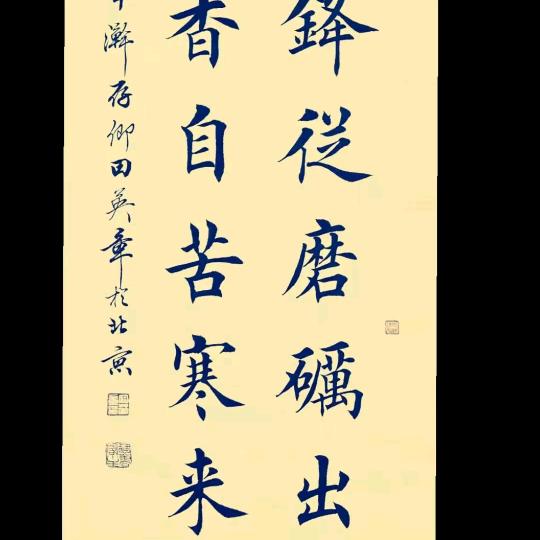 鋒従磨礪出
香自苦寒来
存卿田英章於北京